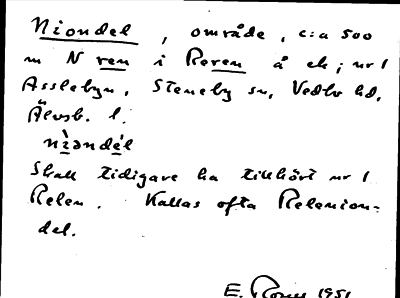 Niondel, område, c:a 500
m N ren i Reren å ek; nr 1
Asslebyn, Steneby sn, Vedbo hd,
Älvsb. l.
nìondél
Skall tidigare ha tillhört nr 1
Relen. Kallas ofta Relenion-
del.
E. 1951